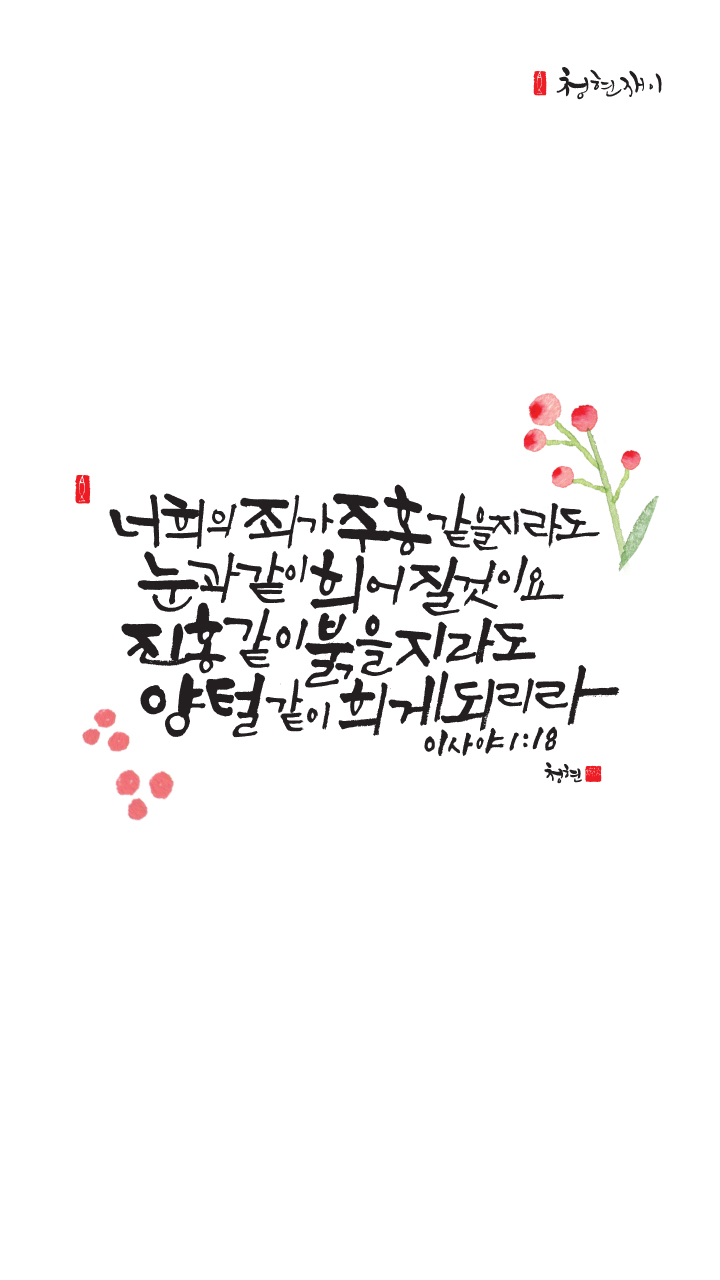 청현재이
너희의 죄가 주홍 같을지라도
눈과 같이 희어 질것이요
진홍 같이 붉을지라도
양털 같이 희게 되리라
이사야 1:18
청현